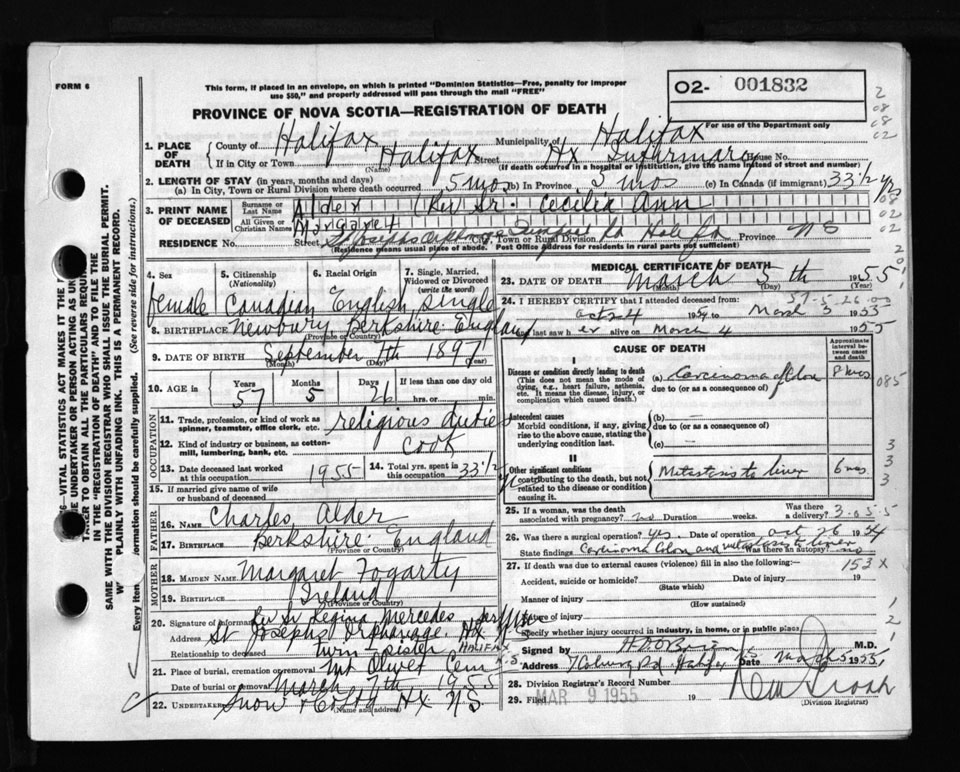 FORM 6
This form, if placed in an envelope, on which is printed "Dominion Statistics—Free, penalty for improper
use $50," and properly addressed will pass through the mail "FREE"
O2- 001832
For use of the Department only
2
08
08
02
PROVINCE OF NOVA SCOTIA—REGISTRATION OF DEATH
1. PLACE OF DEATH
County of Halifax Municipality of Halifax
If in City or Town Halifax (Name) Street Hx Infirmary House No.
(If death occurred in a hospital or institution, give the name instead of street and number)
2. LENGTH OF STAY (in years, months and days)
(a) In City, Town or Rural Division where death occurred 5 mos (b) In Province 5 mos (c) In Canada (if immigrant) 33 1/2 yrs
3. PRINT NAME OF DECEASED
Surname or Last Name Alder (Rev Sr. Cecilia Ann
All Given or Christian Names Margaret
08
02
02
RESIDENCE No. Street St Josephs Orphanage City, Town or Rural Division Rd Halifax Province N S
(Residence means usual place of abode. Post Office Address for residents in rural parts not sufficient)
4. Sex female
5. Citizenship (Nationality) Canadian
6. Racial Origin English
7. Single, Married, Widowed or Divorced (write the word) single
8. BIRTHPLACE Newbury Berkshire England
9. DATE OF BIRTH September 7th 1897
(Month) (Day) (Year)
10. AGE in Years 57 Months 5 Days 26 If less than one day old hrs. or min.
OCCUPATION
11. Trade, profession, or kind of work as spinner, teamster, office clerk, etc. religious duties
12. Kind of industry or business, as cotton-mill, lumbering, bank, etc. Cook
13. Date deceased last worked at this occupation 1955
14. Total yrs. spent in this occupation 33 1/2
15. If married give name of wife or husband of deceased
FATHER
16. NAME Charles Alder
17. BIRTHPLACE Berkshire England
(Province or Country)
MOTHER
18. MAIDEN NAME Margaret Fogarty
19. BIRTHPLACE Ireland
(Province or Country)
20. Signature of informant Rev Sr Regina Mercedes
Address St Josephs Orphanage Hx
HALIFAX N.S
Relationship to deceased twin sister
21. Place of burial, cremation or removal Mt Olivet Cem
Date of burial or removal March 7th 1955
22. UNDERTAKER Snow & Co Ltd Hx N.S.
(Name and address)
MEDICAL CERTIFICATE OF DEATH
23. DATE OF DEATH March 5th 1955
(Month) (Day)
57-5-26
24. I HEREBY CERTIFY that I attended deceased from:
Oct 24 1954 to March 5 1955
and last saw her alive on March 4 1955
CAUSE OF DEATH
Approximate interval between onset and death
I
Disease or condition directly leading to death
(This does not mean the mode of dying, e.g., heart failure, asthenia, etc. It means the disease, injury, or complication which caused death.)
(a) Carcinoma of Colon 8 mos
due to (or as a consequence of)
085
Antecedent causes
Morbid conditions, if any, giving rise to the above cause, stating the underlying condition last.
(b) —
due to (or as a consequence of)
(c) —
3
3
3
II
Other significant conditions
contributing to the death, but not related to the disease or condition causing it.
Metastasis to liver 6 mos
25. If a woman, was the death associated with pregnancy? no Duration weeks. Was there a delivery?
3-05-5
26. Was there a surgical operation? yes. Date of operation Oct 26 1954
State findings Carcinoma Colon and metastasis to liver Was there an autopsy? no
27. If death was due to external causes (violence) fill in also the following:
153 X
Accident, suicide or homicide? Date of injury 19
(State which)
Manner of injury
(How sustained)
Nature of injury
Specify whether injury occurred in industry, in home, or in public place
1
2
1
Signed by H. D. O'Brien M.D.
Address 7 Coburg Rd Halifax Date March 5 1955
28. Division Registrar's Record Number
29. Filed MAR 9 1955
(Division Registrar)
76 — VITAL STATISTICS ACT MAKES IT THE
THE UNDERTAKER OR PERSON ACTING AS
TAKER TO OBTAIN ALL THE PARTICULARS
IN THE "REGISTRATION OF DEATH" AND TO FILE THE
SAME WITH THE DIVISION REGISTRAR WHO SHALL ISSUE THE BURIAL PERMIT.
PLAINLY WITH UNFADING INK. THIS IS A PERMANENT RECORD.
(See reverse side for instructions.)
information should be carefully supplied.
Every item of